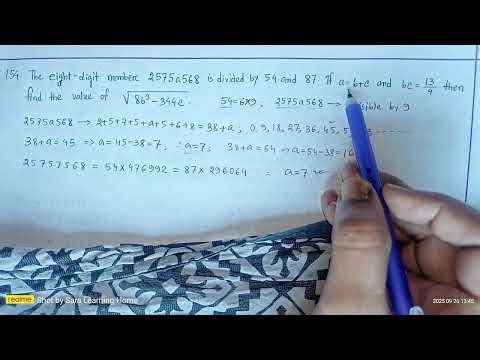 154 The eight-digit numbere 2575a568 is divided by 54 and 87. If a=b+c and bc = 13/4 then
find the value of √(8b³-344c. 54=6×9, 2575a568 → isible by 9
2575a568 → 2+5+7+5+a+5+6+8=38+a; 0,9,18,27,36,45,5
38+a=45 ⇒ a=45-38=7; ∴a=7; 38+a=54 ⇒a=54-38=16
25757568 = 54×476992 = 87×296064 = a=7
realme Shot by Sara Learning Home
2025.09.26 13:45